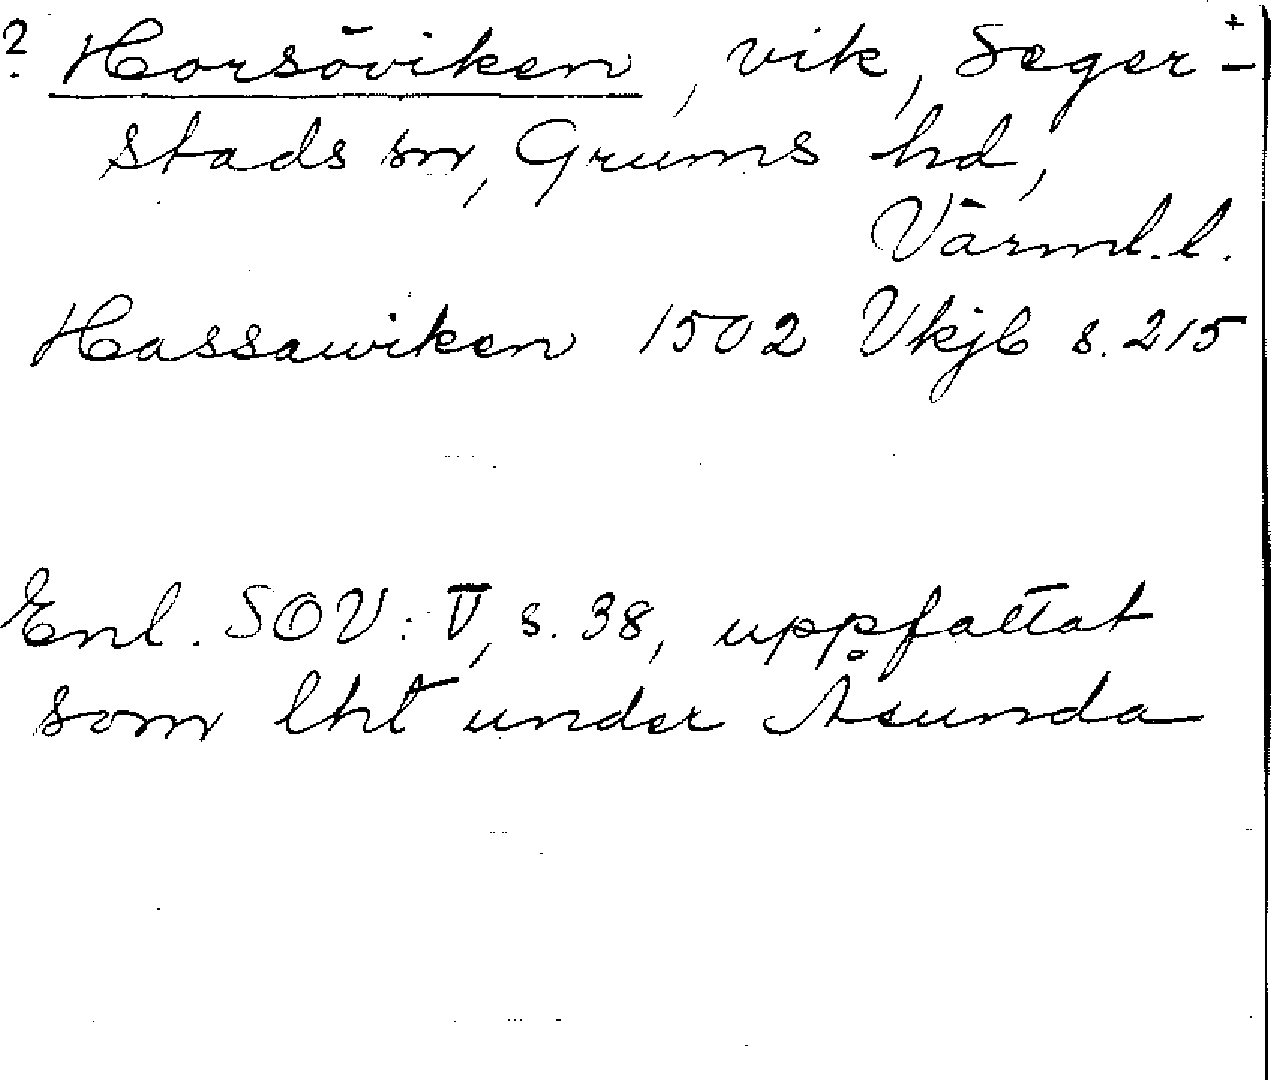 ? Horsöviken, vik, Seger- +
stads sn, Grums hd,
Värml. l.
Hassawiken 1502 Vkjb s. 215
Enl. SOV: V, s. 38, uppfattat
som lht under Åsunda